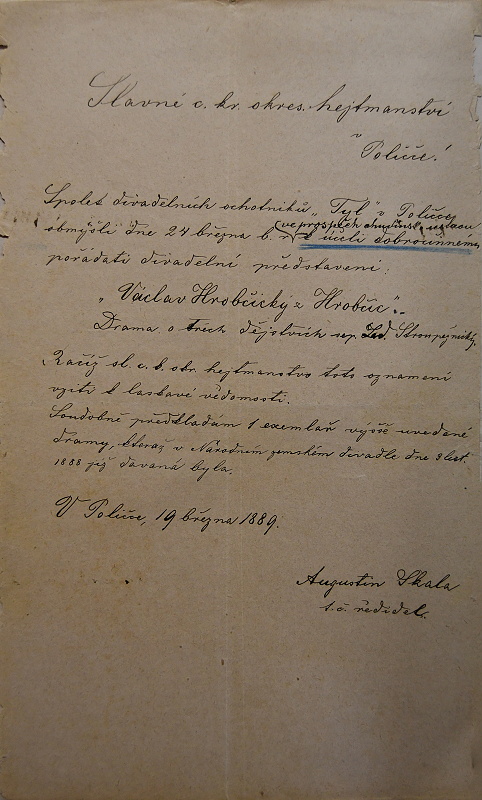 Slavné c. kr. okres. hejtmanství
v
Poličce!
Spolek divadelních ochotníků „Tyl“ v Poličce
(ve prospěch chudinsk. ústavu
obmýšlí dne 24 března b. r. k účeli dobročinnému
pořádati divadelní představení:
„Václav Hrobčický z Hrobčic“.
Drama o třech dějstvích sep. Lad. Stroupežnický.
Račiž sl. c. k. okr. hejtmanstvo toto oznámení
vzíti k laskavé vědomosti.
Soudobně předkládám 1 exemlář výjšě uvedené
dramy, kteráž v Národním zemském divadle dne 8 list.
1888 již dávaná byla.
V Poličce, 19 března 1889.
Augustin Skala
t. č. ředidel.